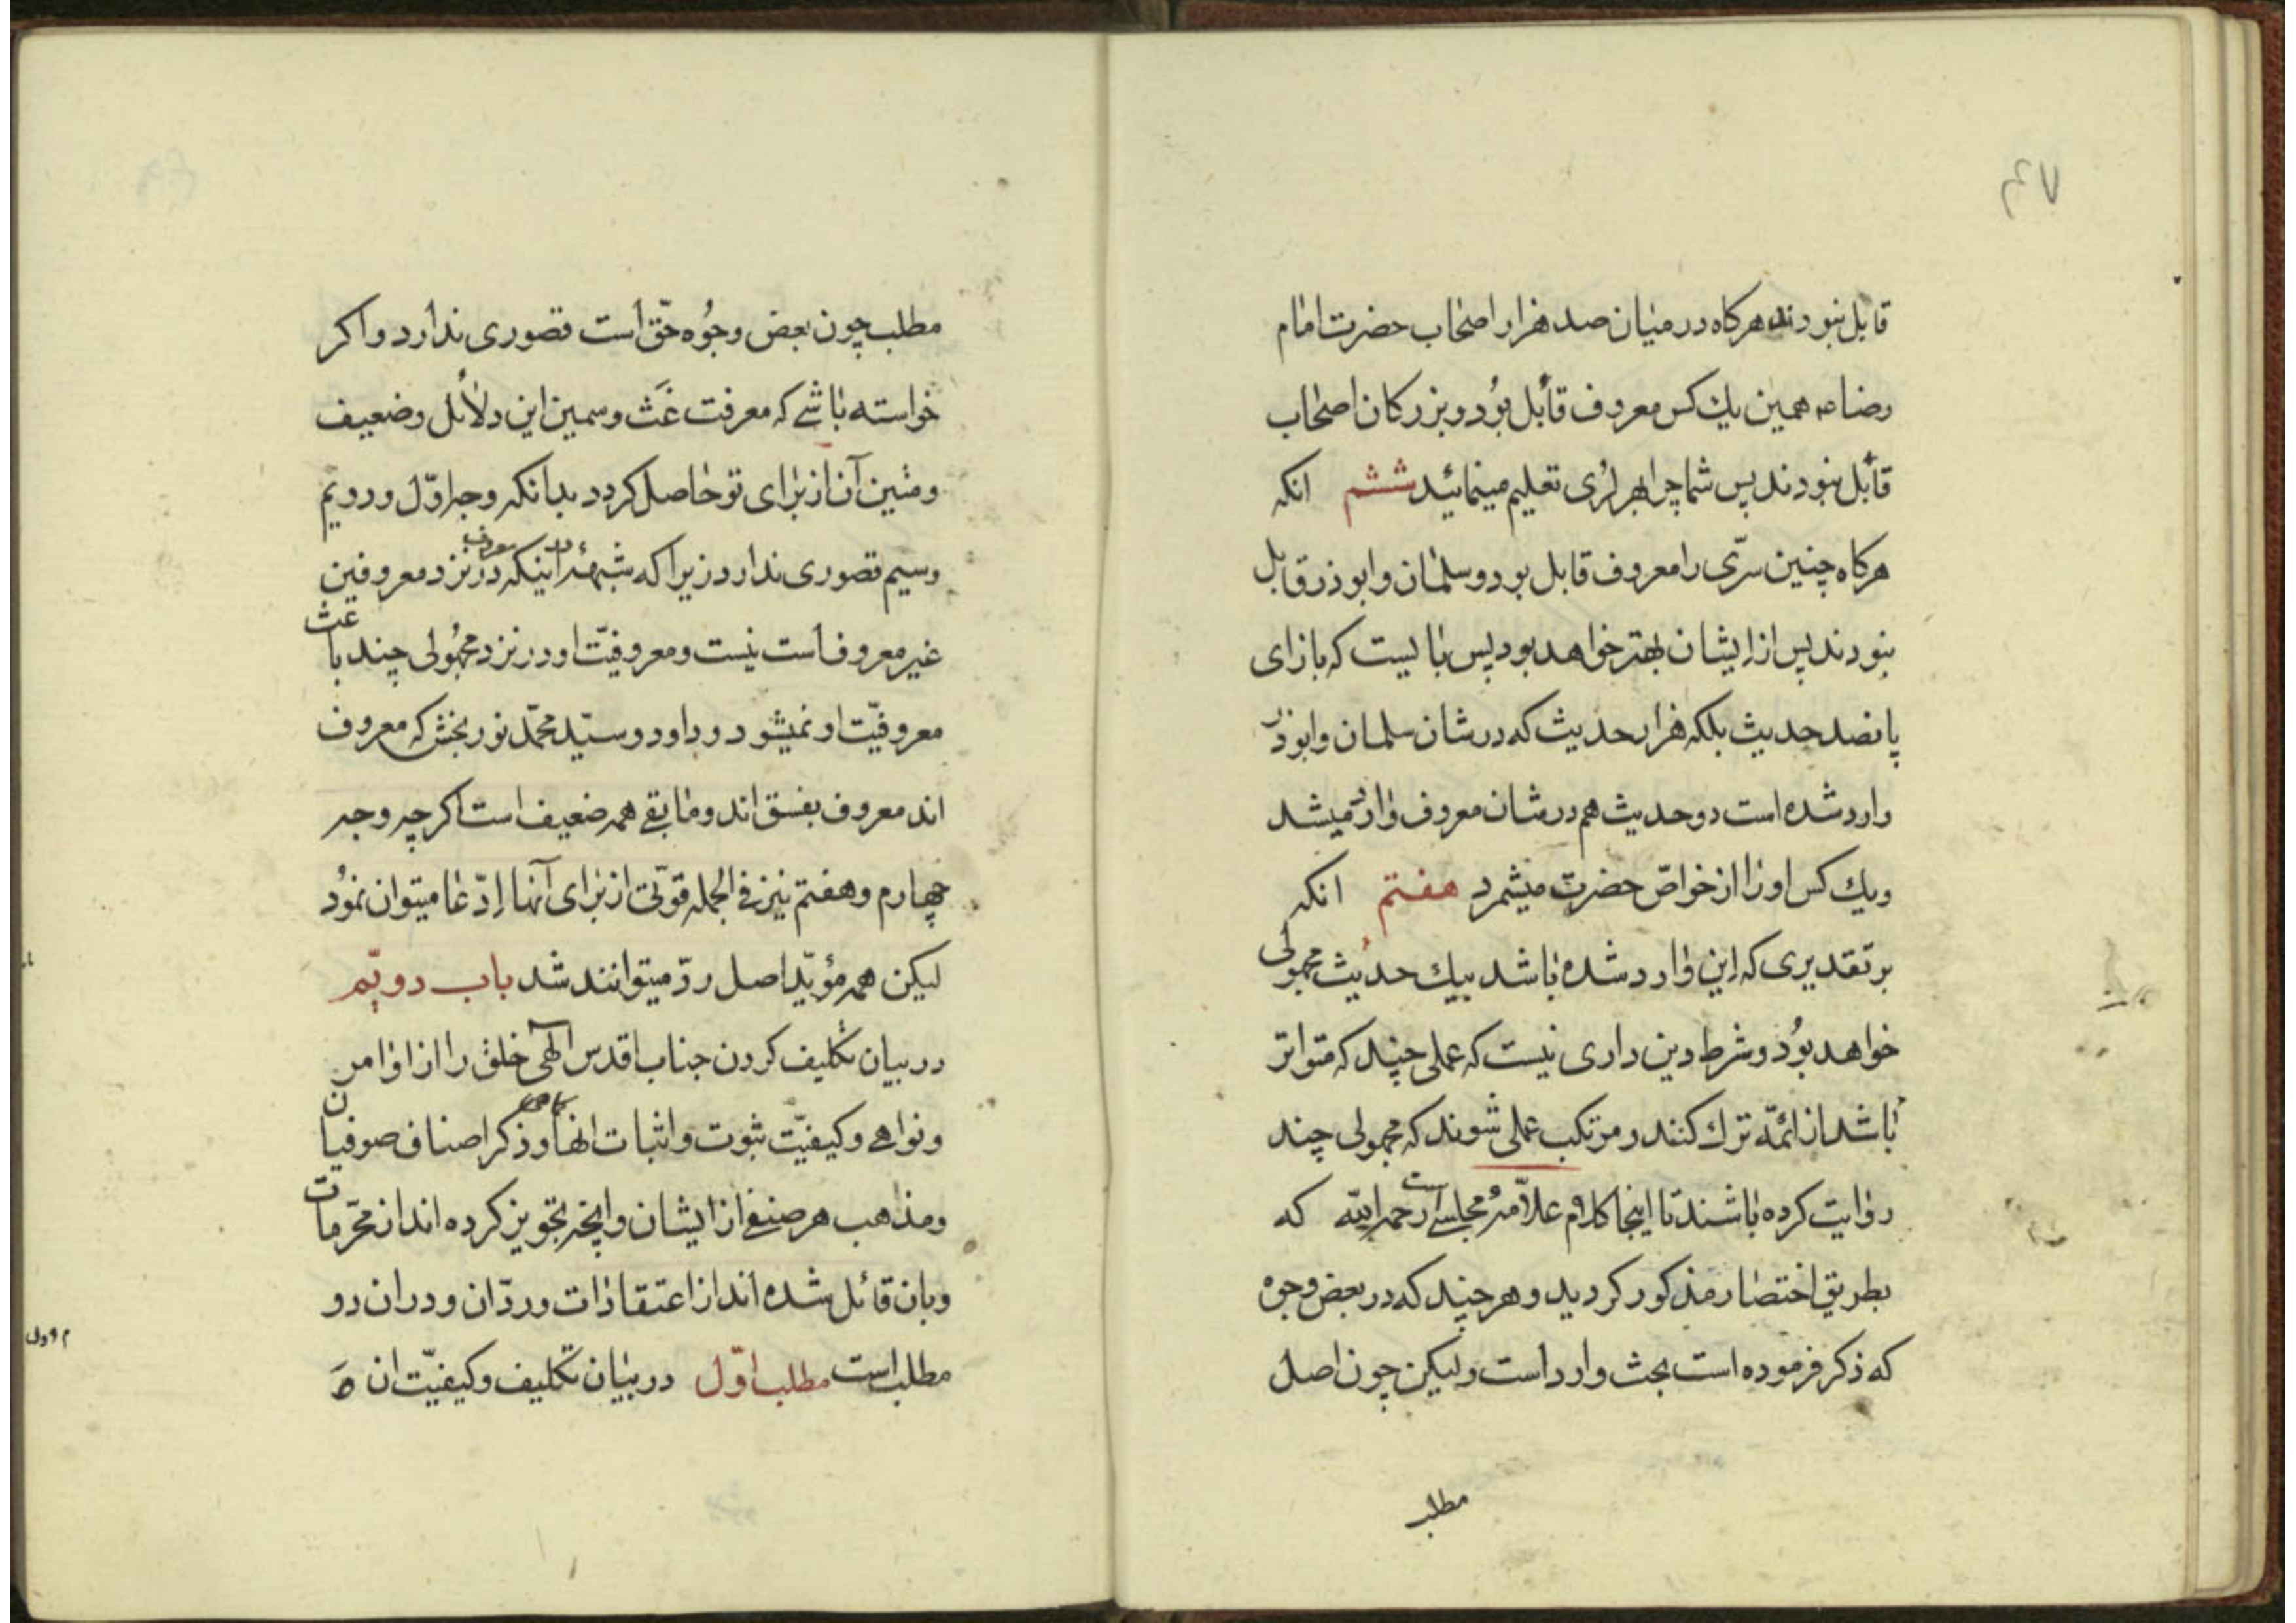 ۴۷
قابل نبودند هرکاه در میان صد هزار اصحاب حضرت امام
رضا ص همین یك کس معروف قابل بود و بزرکان اصحاب
قابل نبودند پس شما چرا بهر لری تعلیم مینمائید ششم انکه
هرکاه چنین سرّی را معروف قابل بود و سلمان و ابوذر قابل
نبودند پس از ایشان بهتر خواهد بود پس بایست که بازای
پانصد حدیث بلکه هزار حدیث که در شان سلمان و ابوذر
وارد شده است دو حدیث هم در شان معروف وارد میشد
و یك کس او را از خواصّ حضرت میشمرد هفتم انکه
بر تقدیری که این وارد شده باشد بیك حدیث مجهولی
خواهد بُود و شرط دین داری نیست که عملی چند که متواتر
باشد از ائمّه ترك کنند و مرتکب عملی شوند که مجهولی چند
روایت کرده باشند تا اینجا کلام علاّمهٔ مجلسی است رحمه الله که
بطریق اختصار مذکور کردید و هر چند که در بعض وجوه
که ذکر فرموده است بحث وارد است ولیکن چون اصل
مطلب
مطلب چون بعض وجُوه حقّ است قصوری ندارد و اکر
خواسته باشی که معرفت غَث و سمین این دلائل و ضعیف
و متین آن از برای تو حاصل کردد بدانکه وجه اوّل و دویم
و سیم قصوری ندارد زیرا که شبههٔ در اینکه معروف در نزد معروفین
غیر معروف است نیست و معروفیّت او در نزد مجهُولی چند باعث
معروفیّت او نمیشود و داود و سیّد محمّد نوربخش که معروف
اند معروف بفسق اند و مابقی همه ضعیف است اکرچه وجه
چهارم و هفتم نیز فی الجمله قوّتی از برای آنها اِدّعا میتوان نمُود
لیکن همه مؤیّد اصل ردّ میتوانند شد باب دویّم
در بیان تکلیف کردن جناب اقدس الٓهی خلق را از اوامر
و نواهی و کیفیّت ثبوت و اثبات انها و ذکر اصناف صوفیان
و مذاهب هر صنفی از ایشان و انچه تجویز کرده اند از محرّمات
و بان قائل شده اند از اعتقادات و ردّ ان و در ان دو
مطلب است مطلب اوّل در بیان تکلیف و کیفیّت ان